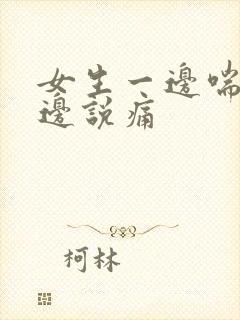 女生一邊喘
邊說痛
柯林